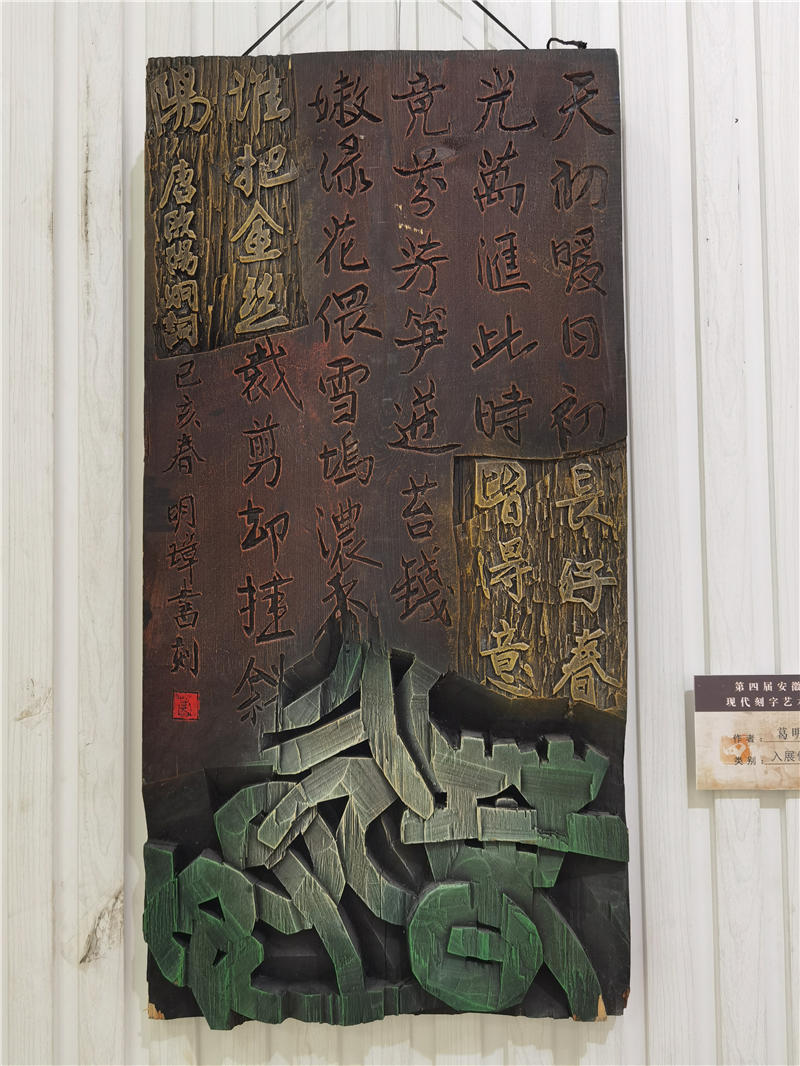 天初暖日初長好春
光萬滙此時皆得意
竞芬芳笋迸苔錢
嫩绿花偎雪塢濃香
誰把金丝裁剪却挂斜
陽 唐欧陽炯詞 己亥春 明璋書刻
第四届安徽
现代刻字艺
作者：葛明
类别：入展